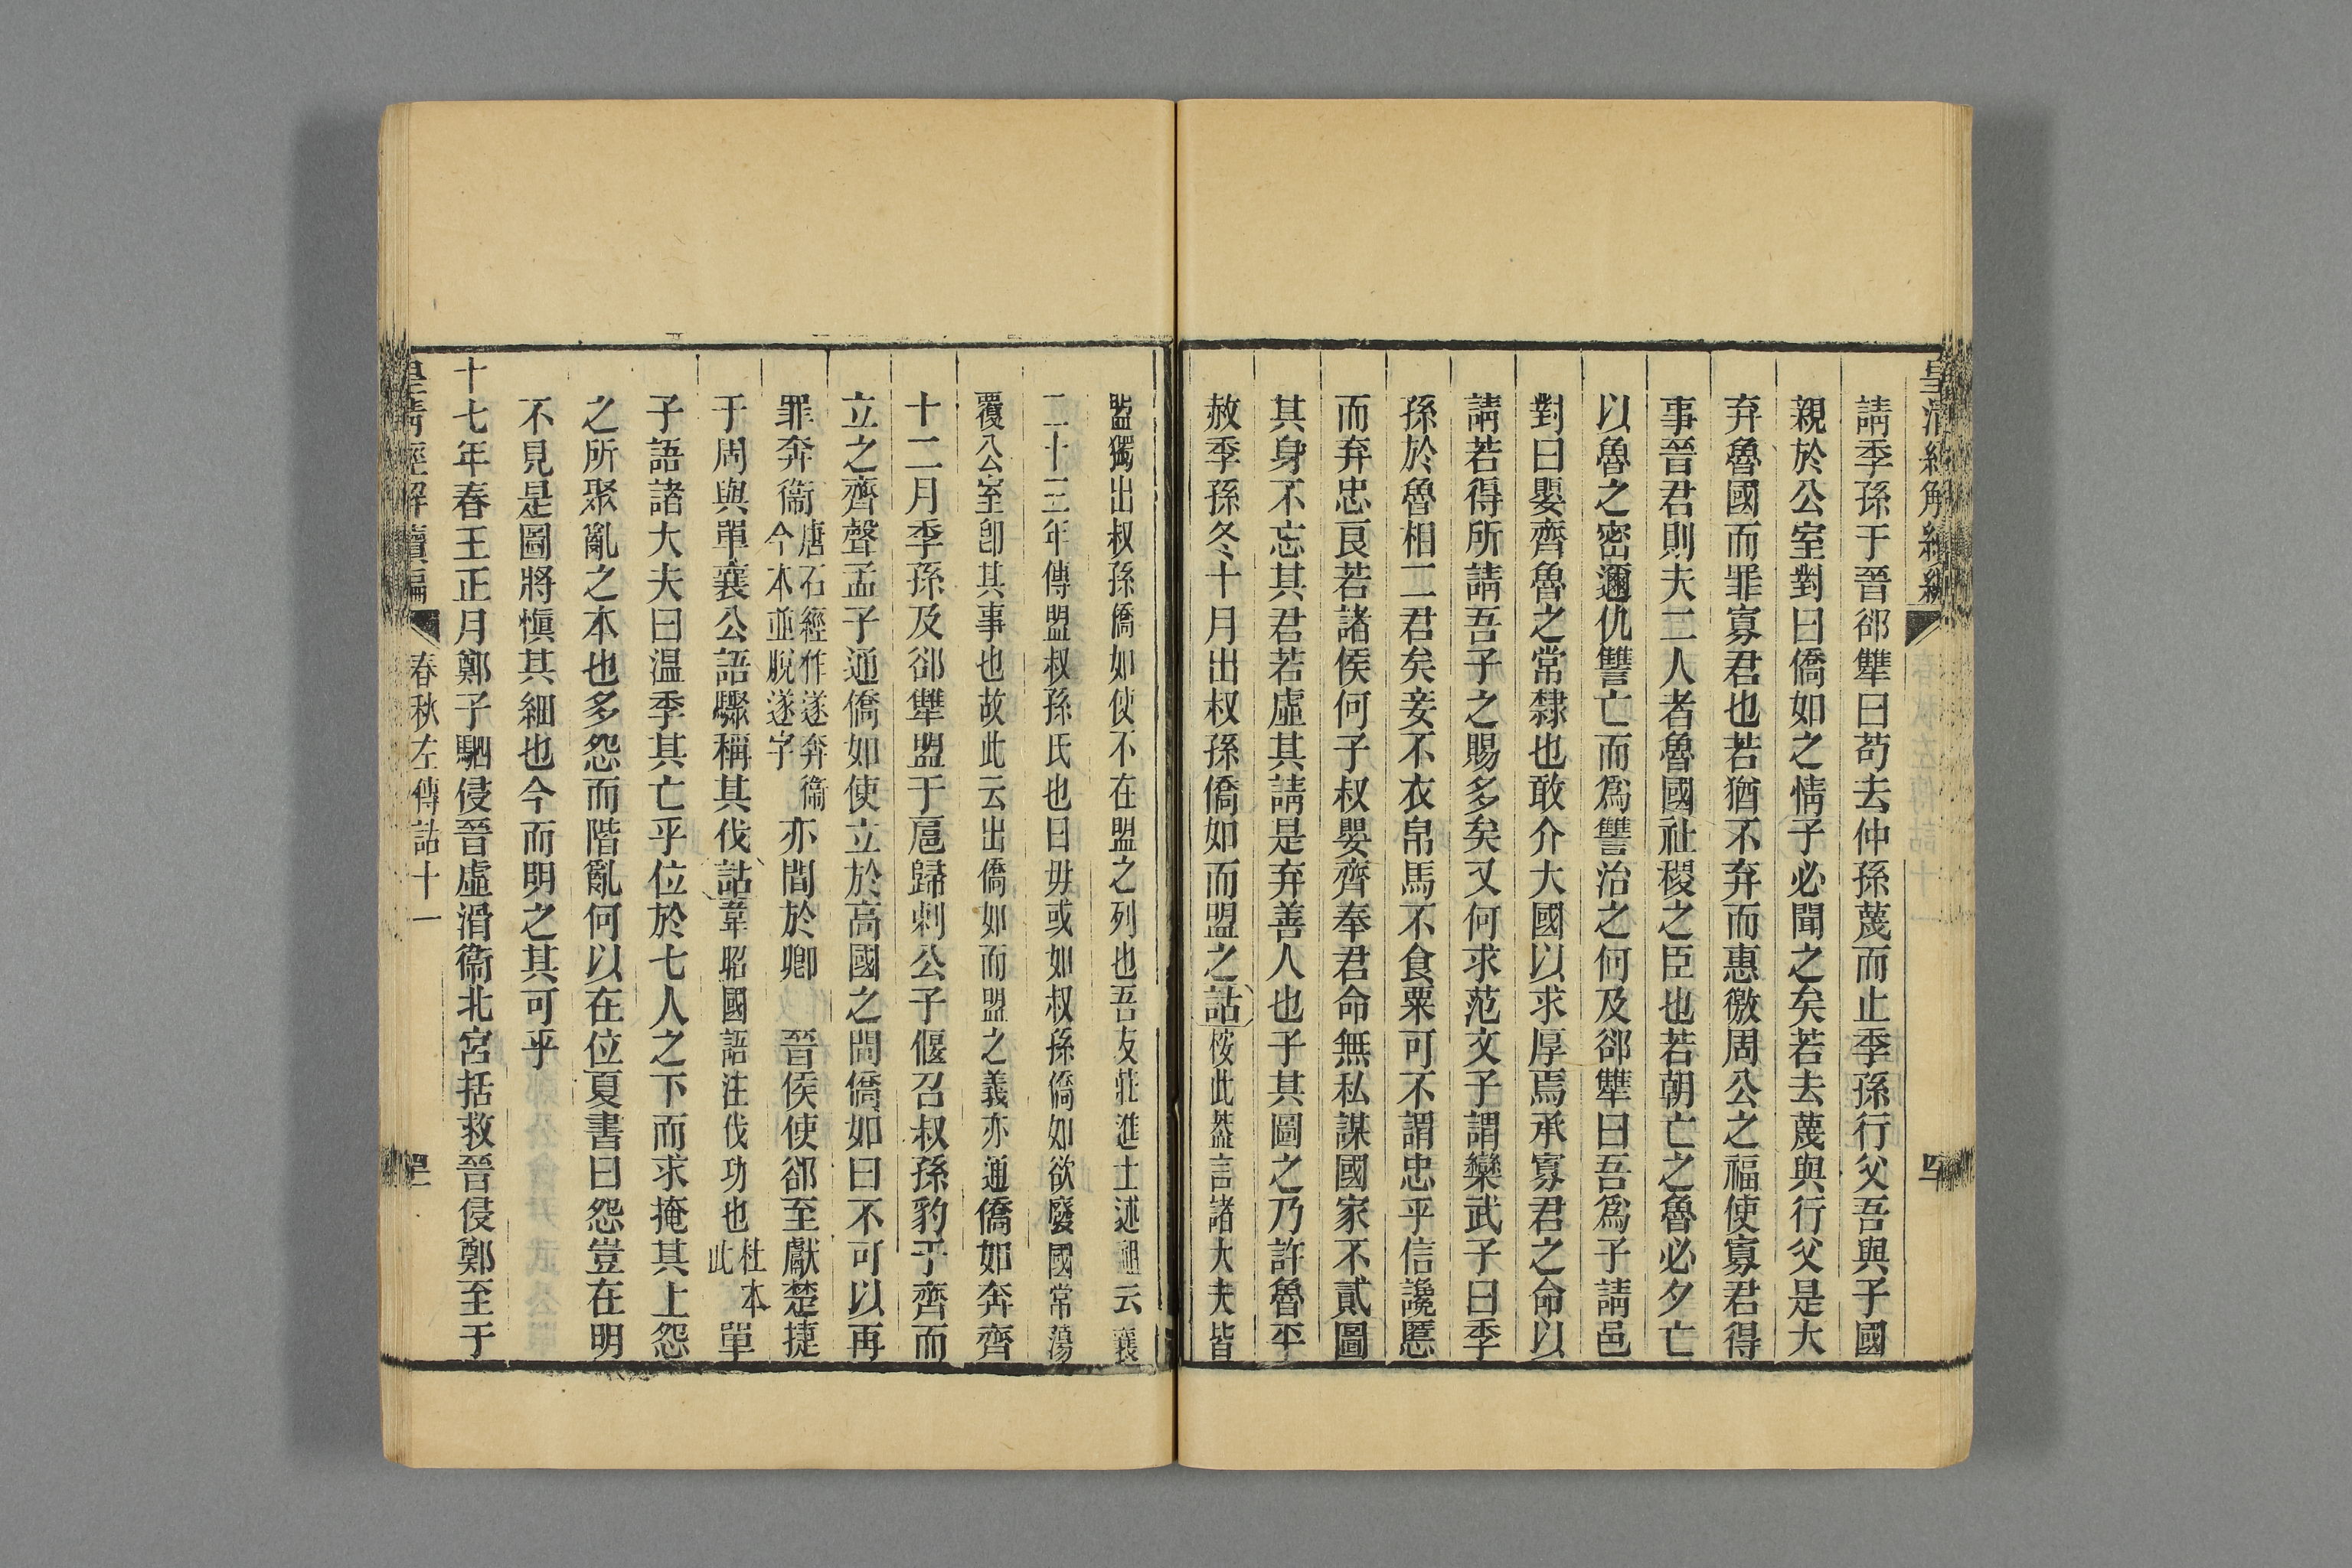 皇清經解續編
請季孫于晉郤犨曰苟去仲孫蔑而止季孫行父吾與子國
親於公室對曰僑如之情子必聞之矣若去蔑與行父是大
弃魯國而罪寡君也若猶不弃而惠徼周公之福使寡君得
事晉君則夫二人者魯國社稷之臣也若朝亡之魯必夕亡
以魯之密邇仇讐亡而爲讐治之何及郤犨曰吾爲子請邑
對曰嬰齊魯之常隸也敢介大國以求厚焉承寡君之命以
請若得所請吾子之賜多矣又何求范文子謂欒武子曰季
孫於魯相二君矣妾不衣帛馬不食粟可不謂忠乎信讒慝
而弃忠良若諸侯何子叔嬰齊奉君命無私謀國家不貳圖
其身不忘其君若虛其請是弃善人也子其圖之乃許魯平
赦季孫冬十月出叔孫僑如而盟之詁桉此葢言諸大夫皆
盟獨出叔孫僑如使不在盟之列也吾友莊進士述祖云襄
二十三年傳盟叔孫氏也曰毋或如叔孫僑如欲廢國常蕩
覆公室卽其事也故此云出僑如而盟之義亦通僑如奔齊
十二月季孫及郤犨盟于扈歸刺公子偃召叔孫豹于齊而
立之齊聲孟子通僑如使立於高國之間僑如曰不可以再
罪奔衞唐石經作遂奔衞今本並脫遂字亦間於卿　晉侯使郤至獻楚捷
于周與單襄公語驟稱其伐詁韋昭國語注伐功也杜本此單
子語諸大夫曰温季其亡乎位於七人之下而求掩其上怨
之所聚亂之本也多怨而階亂何以在位夏書曰怨豈在明
不見是圖將愼其細也今而明之其可乎
十七年春王正月鄭子駟侵晉虛滑衞北宮括救晉侵鄭至于
皇清經解續編　春秋左傳詁十一